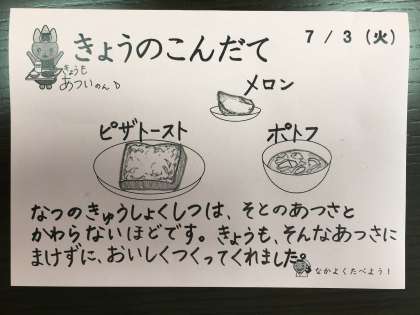 きょうのこんだて
7 / 3 (火)
きょうも
あついのん♪
メロン
ピザトースト
ポトフ
なつのきゅうしょくしつは、そとのあつさと
かわらないほどです。きょうも、そんなあつさに
まけずに、おいしくつくってくれました。
なかよくたべよう!